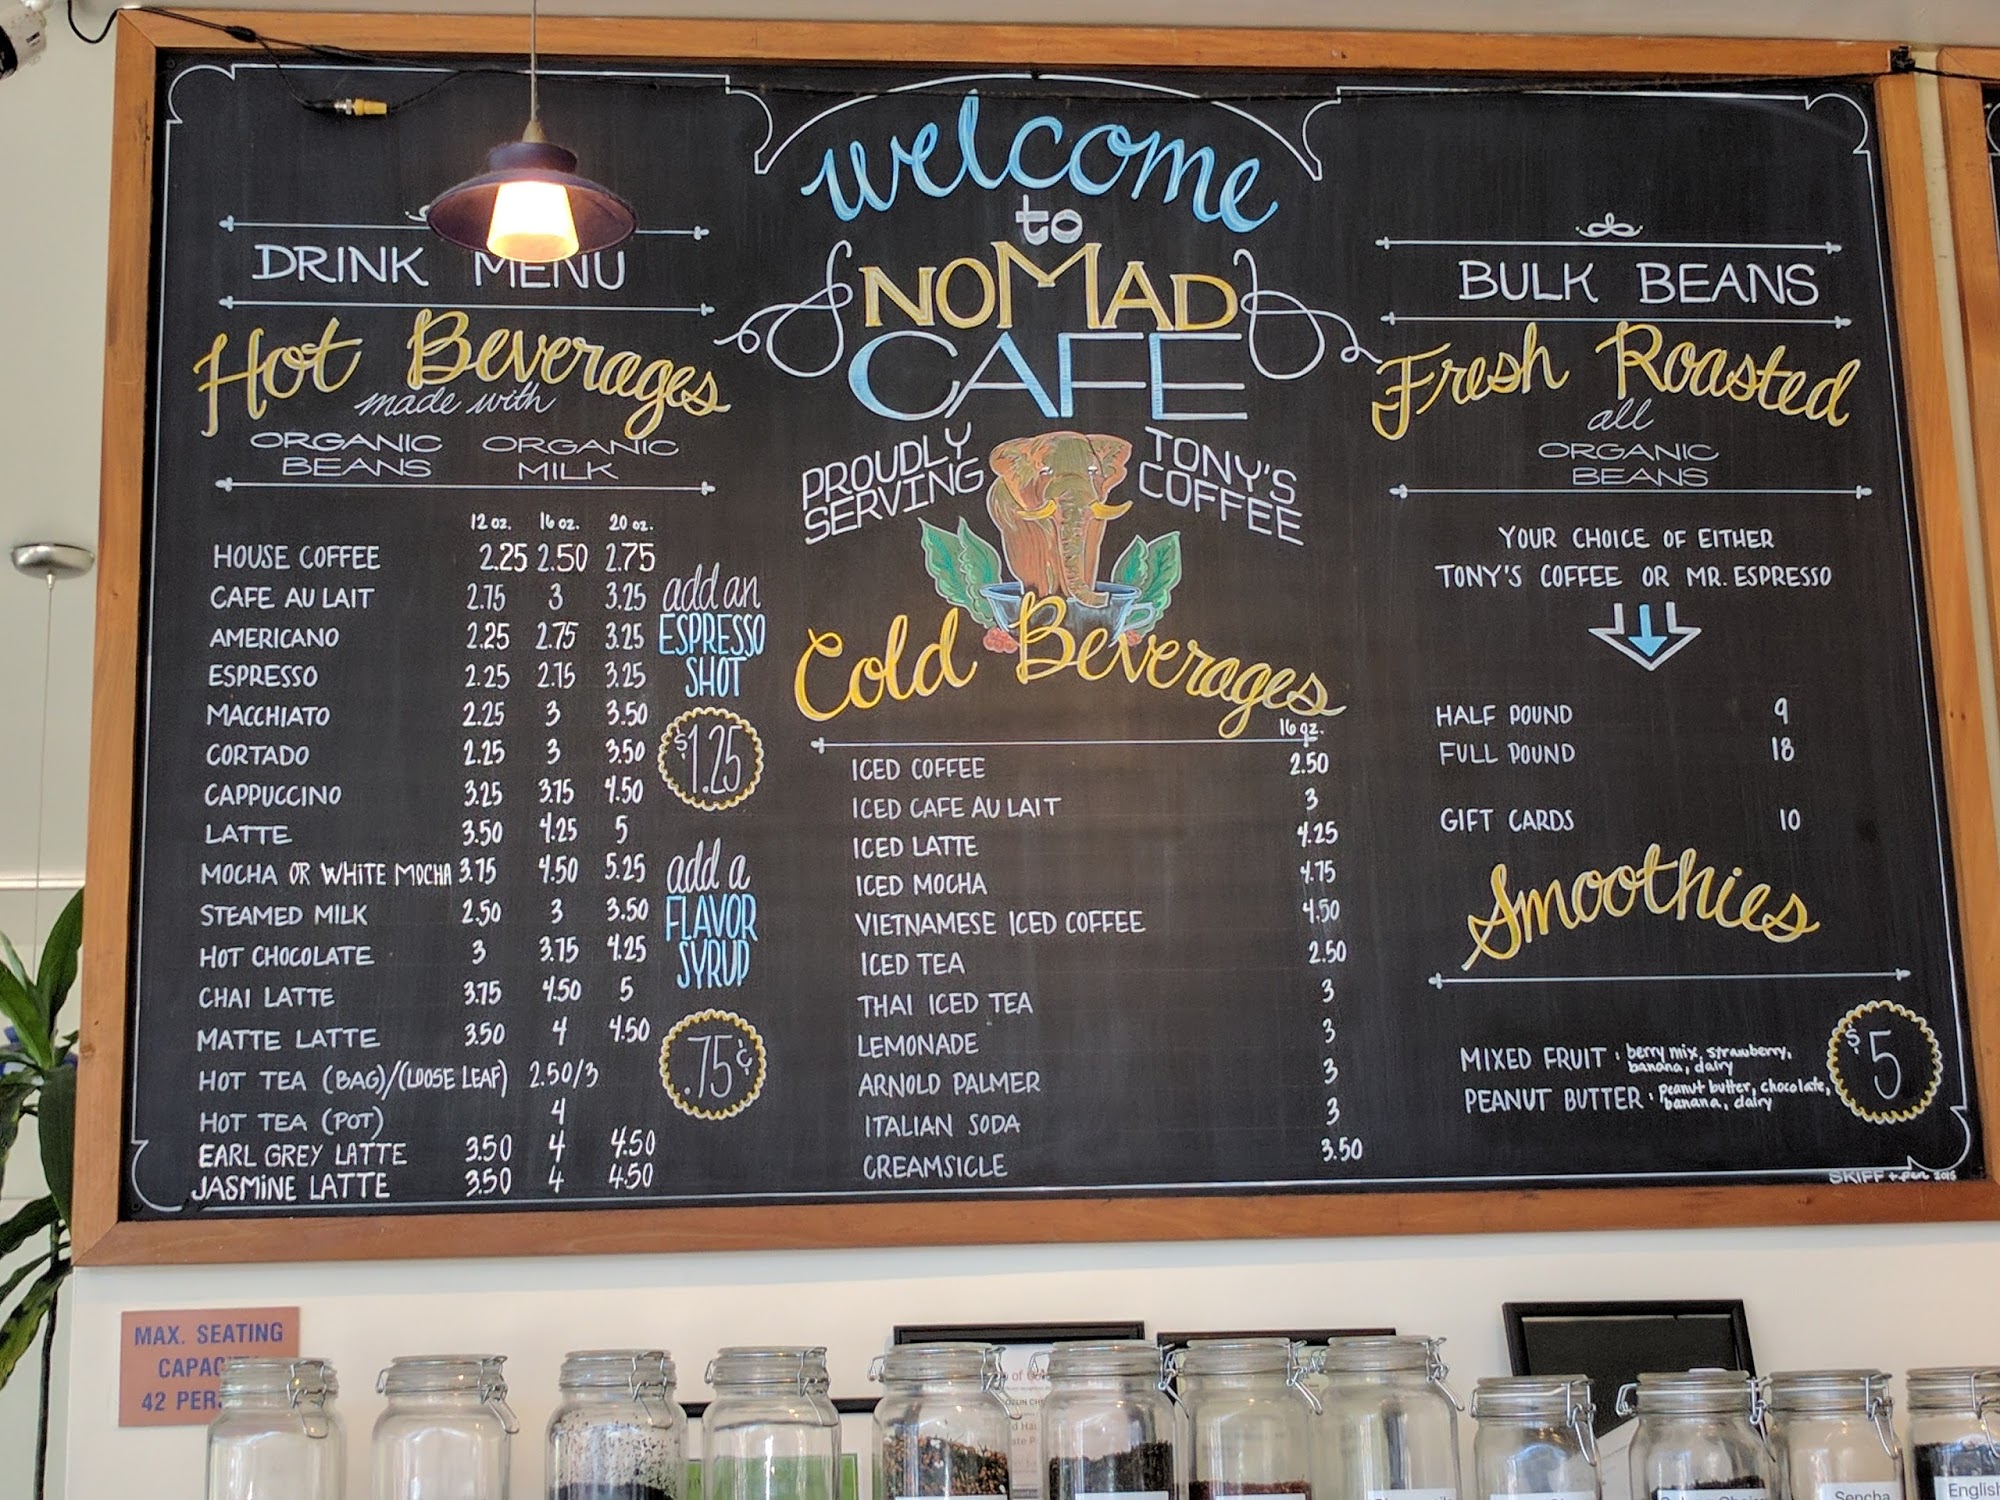 welcome
to
NOMAD
CAFE
PROUDLY SERVING
TONY'S COFFEE
DRINK MENU
Hot Beverages
made with
ORGANIC BEANS
ORGANIC MILK
12 oz. 16 oz. 20 oz.
HOUSE COFFEE 2.25 2.50 2.75
CAFE AU LAIT 2.75 3 3.25
AMERICANO 2.25 2.75 3.25
ESPRESSO 2.25 2.75 3.25
MACCHIATO 2.25 3 3.50
CORTADO 2.25 3 3.50
CAPPUCCINO 3.25 3.75 4.50
LATTE 3.50 4.25 5
MOCHA OR WHITE MOCHA 3.75 4.50 5.25
STEAMED MILK 2.50 3 3.50
HOT CHOCOLATE 3 3.75 4.25
CHAI LATTE 3.75 4.50 5
MATTE LATTE 3.50 4 4.50
HOT TEA (BAG)/(LOOSE LEAF) 2.50/3
HOT TEA (POT) 4
EARL GREY LATTE 3.50 4 4.50
JASMINE LATTE 3.50 4 4.50
add an
ESPRESSO
SHOT
$1.25
add a
FLAVOR
SYRUP
.75¢
Cold Beverages
16 oz.
ICED COFFEE 2.50
ICED CAFE AU LAIT 3
ICED LATTE 4.25
ICED MOCHA 4.75
VIETNAMESE ICED COFFEE 4.50
ICED TEA 2.50
THAI ICED TEA 3
LEMONADE 3
ARNOLD PALMER 3
ITALIAN SODA 3
CREAMSICLE 3.50
BULK BEANS
Fresh Roasted
all
ORGANIC
BEANS
YOUR CHOICE OF EITHER
TONY'S COFFEE OR MR. ESPRESSO
HALF POUND 9
FULL POUND 18
GIFT CARDS 10
Smoothies
MIXED FRUIT: berry mix, strawberry,
banana, dairy
PEANUT BUTTER: peanut butter, chocolate,
banana, dairy
$5
SKIFF + pen 2015
MAX. SEATING
CAPACITY
42 PER
Sencha
English